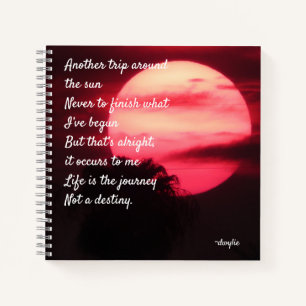 Another trip around
the sun
Never to finish what
I've begun
But that's alright,
it occurs to me
Life is the journey
Not a destiny.
~dwylie